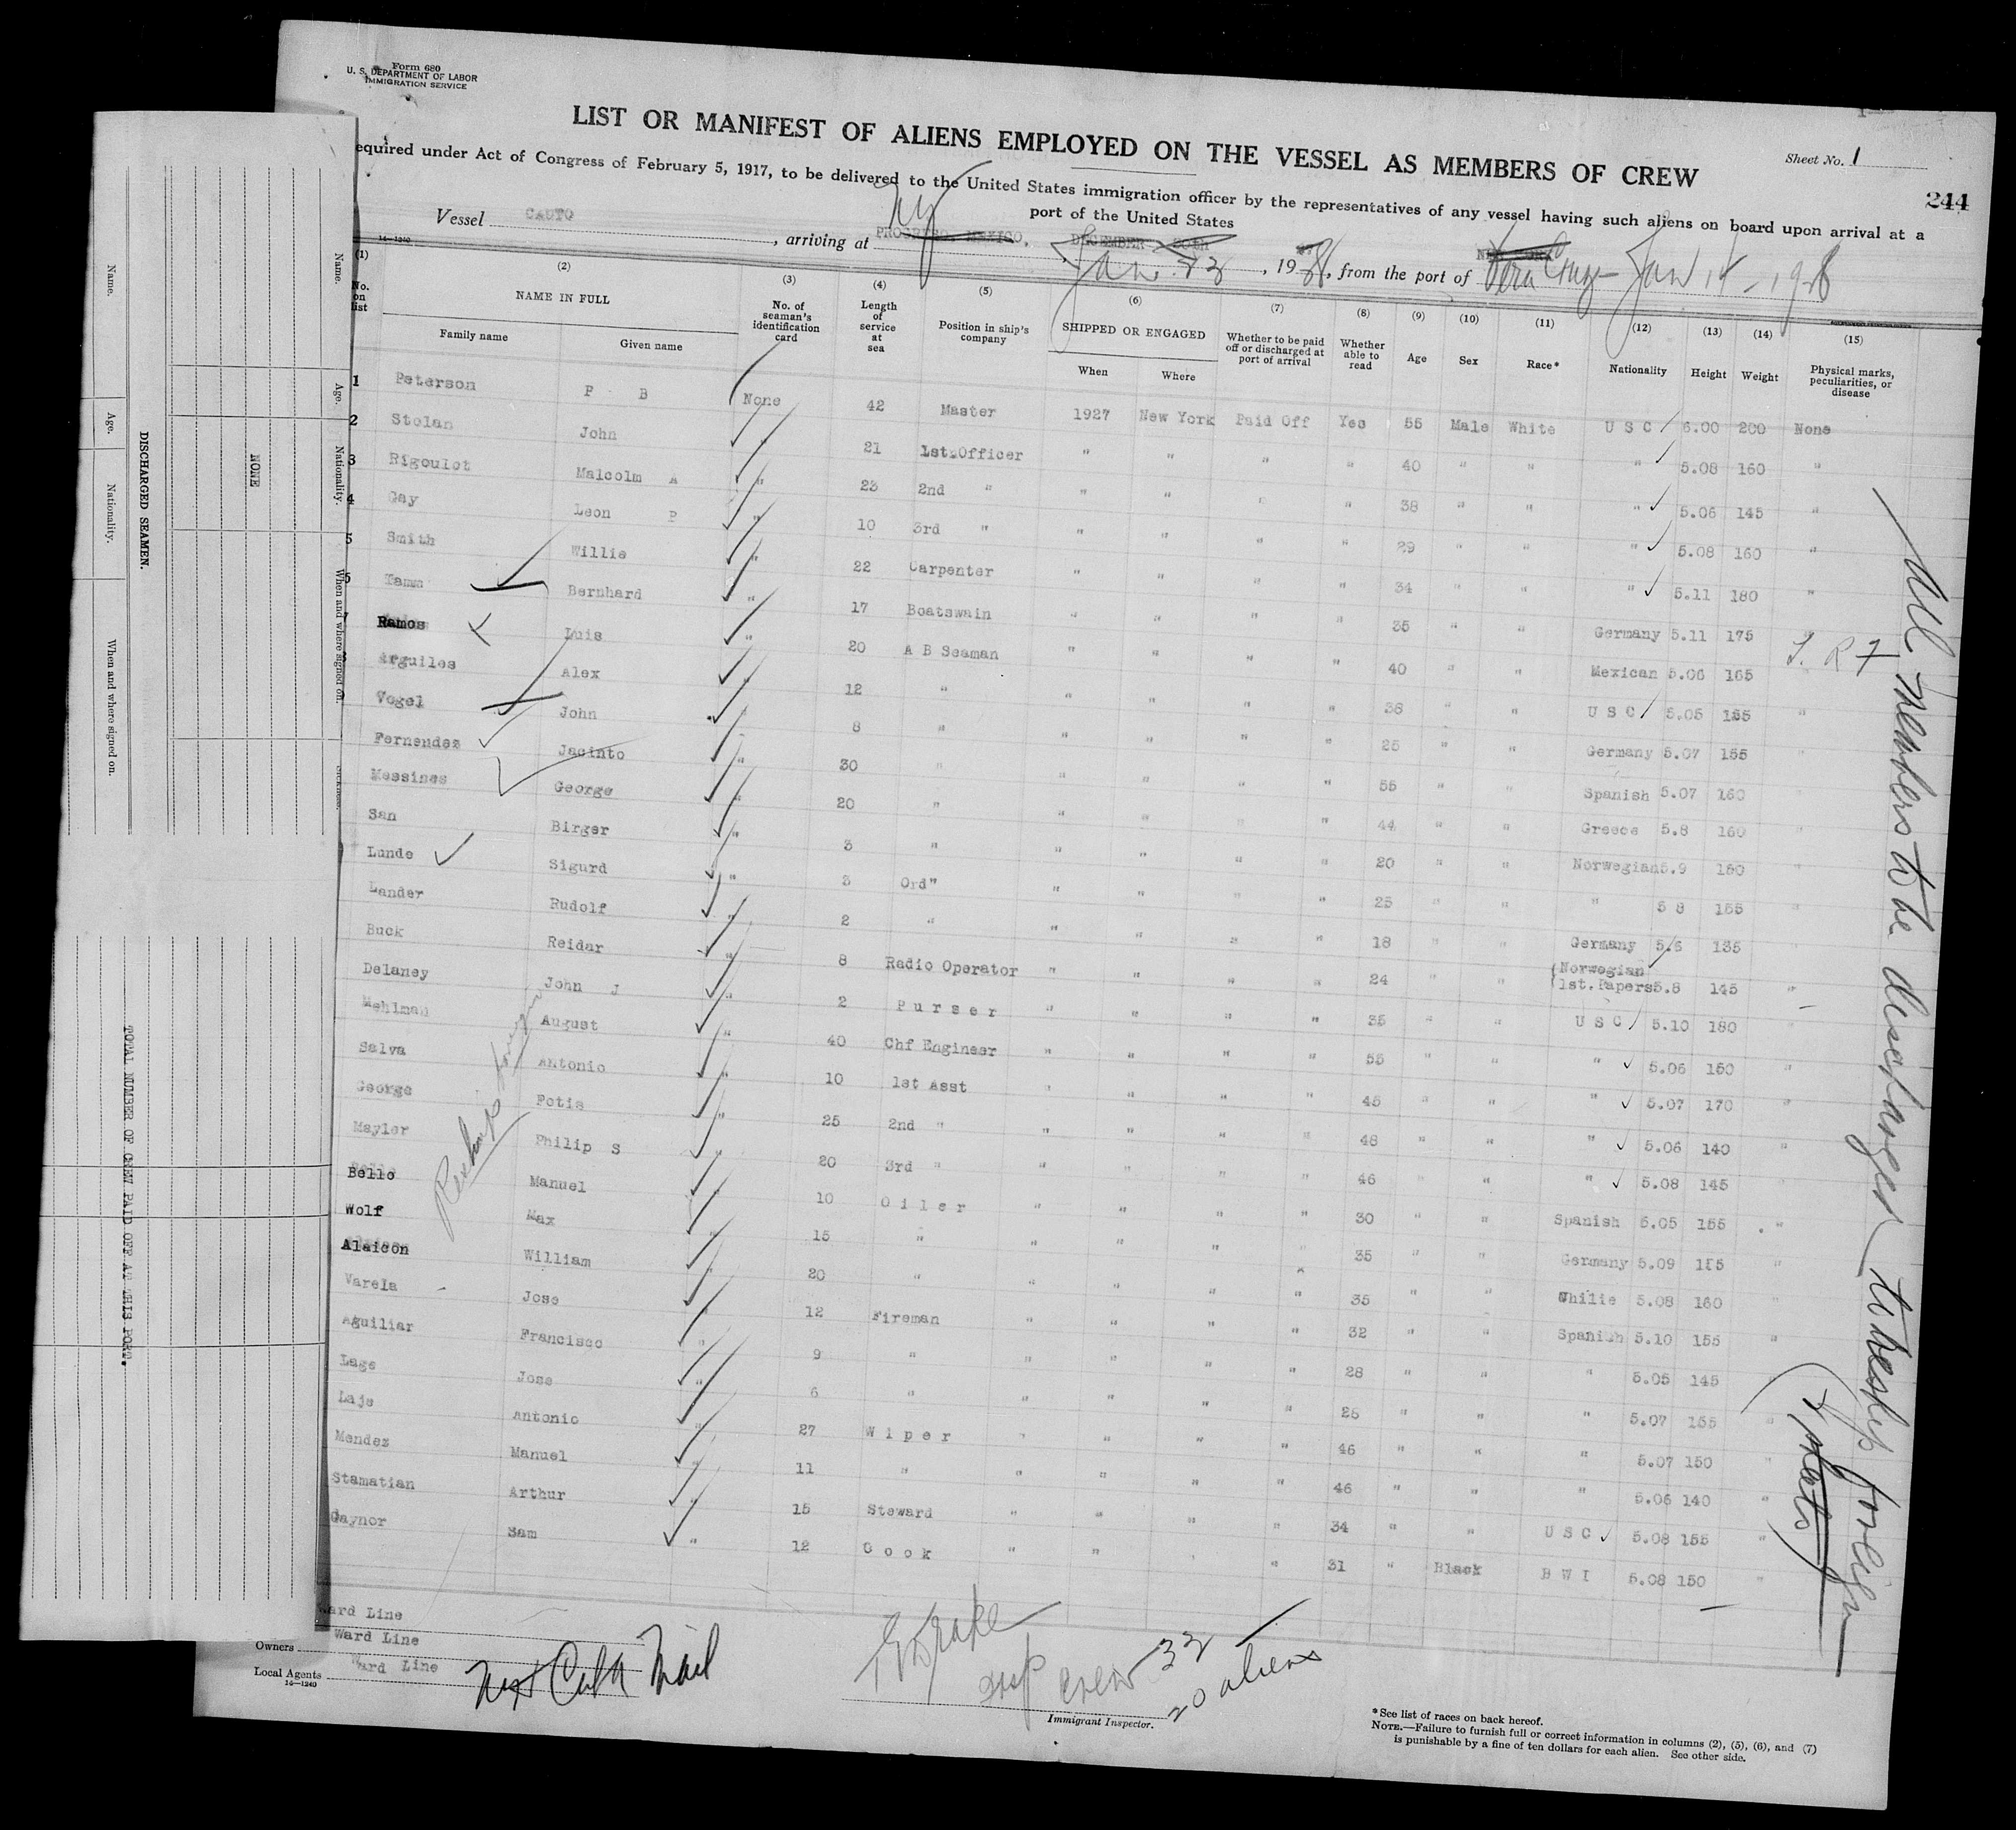 Form 680
U. S. DEPARTMENT OF LABOR
IMMIGRATION SERVICE
LIST OR MANIFEST OF ALIENS EMPLOYED ON THE VESSEL AS MEMBERS OF CREW
Sheet No. 1
equired under Act of Congress of February 5, 1917, to be delivered to the United States immigration officer by the representatives of any vessel having such aliens on board upon arrival at a
port of the United States
244
Vessel CAUTO, arriving at PROGRESO, MEXICO, DECEMBER 30th NY Jan. 23, 1928, from the port of NEW YORK Vera Cruz - Jan 14 - 1928
14—1240
(1) (2) (3) (4) (5) (6) (7) (8) (9) (10) (11) (12) (13) (14) (15)
No. on list NAME IN FULL No. of seaman's identification card Length of service at sea Position in ship's company SHIPPED OR ENGAGED Whether to be paid off or discharged at port of arrival Whether able to read Age Sex Race* Nationality Height Weight Physical marks, peculiarities, or disease
Family name Given name When Where
1 Peterson F B None 42 Master 1927 New York Paid Off Yes 55 Male White U S C 6.00 200 None
2 Stolan John " 21 1st.Officer " " " " 40 " " " 5.08 160 "
3 Rigoulot Malcolm A " 23 2nd " " " " " 38 " " " 5.06 145 "
4 Gay Leon P " 10 3rd " " " " " 29 " " " 5.08 160 "
5 Smith Willie " 22 Carpenter " " " " 34 " " " 5.11 180 "
Tamm Bernhard " 17 Boatswain " " " " 35 " " Germany 5.11 175 "
Ramos Luis " 20 A B Seaman " " " " 40 " " Mexican 5.06 165
Arguiles Alex " 12 " " " " " 38 " " U S C 5.05 135 "
Vogel John " 8 " " " " " 25 " " Germany 5.07 155 "
Fernendez Jacinto " 30 " " " " " 55 " " Spanish 5.07 160 "
Messines George " 20 " " " " " 44 " " Greece 5.8 160 "
San Birger " 3 " " " " " 20 " " Norwegian 5.9 160 "
Lunde Sigurd " 3 Ord" " " " " 25 " " " 5 8 155 "
Lander Rudolf " 2 " " " " " 18 " " Germany 5.6 135 "
Buck Reidar " 8 Radio Operator " " " " 24 " " (Norwegian
(1st.Papers 5.8 145 "
Delaney John J " 2 Purser " " " " 35 " " U S C 5.10 180
Mehlman August " 40 Chf Engineer " " " " 55 " " " 5.06 150 "
Selva Antonio " 10 1st Asst " " " " 45 " " " 5.07 170 "
George Fotis " 25 2nd " " " " " 48 " " " 5.06 140 "
Mayler Philip S " 20 3rd " " " " " 46 " " " 5.08 145 "
Bello Manuel " 10 Oiler " " " " 30 " " Spanish 5.05 155 "
Wolf Max " 15 " " " " " 35 " " Germany 5.09 155 "
Alaicon William " 20 " " " " " 35 " " Chilie 5.08 160 "
Varela Jose " 12 Fireman " " " " 32 " " Spanish 5.10 155 "
Aguiliar Francisco " 9 " " " " " 28 " " " 5.05 145 "
Lage Jose " 6 " " " " " 25 " " " 5.07 155 "
Laje Antonio " 27 Wiper " " " " 46 " " " 5.07 150 "
Mendez Manuel " 11 " " " " " 46 " " " 5.06 140 "
Stamatian Arthur " 15 Steward " " " " 34 " " U S C 5.08 155 "
Gaynor Sam " 12 Cook " " " " 31 " Black B W I 5.08 150 "
Reship foreign
All members to be discharged to reship foreign
ard Line
Owners Ward Line
Local Agents Ward Line
14—1240
NY & Cuba Mail
insp crew 32
20 aliens
Immigrant Inspector.
*See list of races on back hereof.
NOTE.—Failure to furnish full or correct information in columns (2), (5), (6), and (7)
is punishable by a fine of ten dollars for each alien. See other side.
DISCHARGED SEAMEN.
Name. Age. Nationality. When and where signed on.
NONE
Name. Age. Nationality. When and where signed on.
TOTAL NUMBER OF CREW PAID OFF AT THIS PORT.